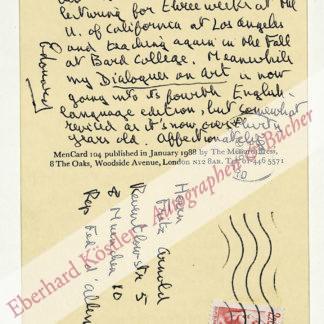 lecturing for three weeks at the
U. of California at Los Angeles
and teaching again in the Fall
at Bard College. Meanwhile
my Dialogues on Art is now
going into its fourth English-
language edition, but somewhat
revised as it's now over thirty
years old. Affectionately
Edouard
MenCard 104 published in January 1988 by The Menard Press,
8 The Oaks, Woodside Avenue, London N12 8AR. Tel: 01-446 5571
Herrn
Fritz Arnold
Reventlowstr 5
8 München 80
Rep Fed d'Allem
Eberhard Köstler Autographen & Bücher